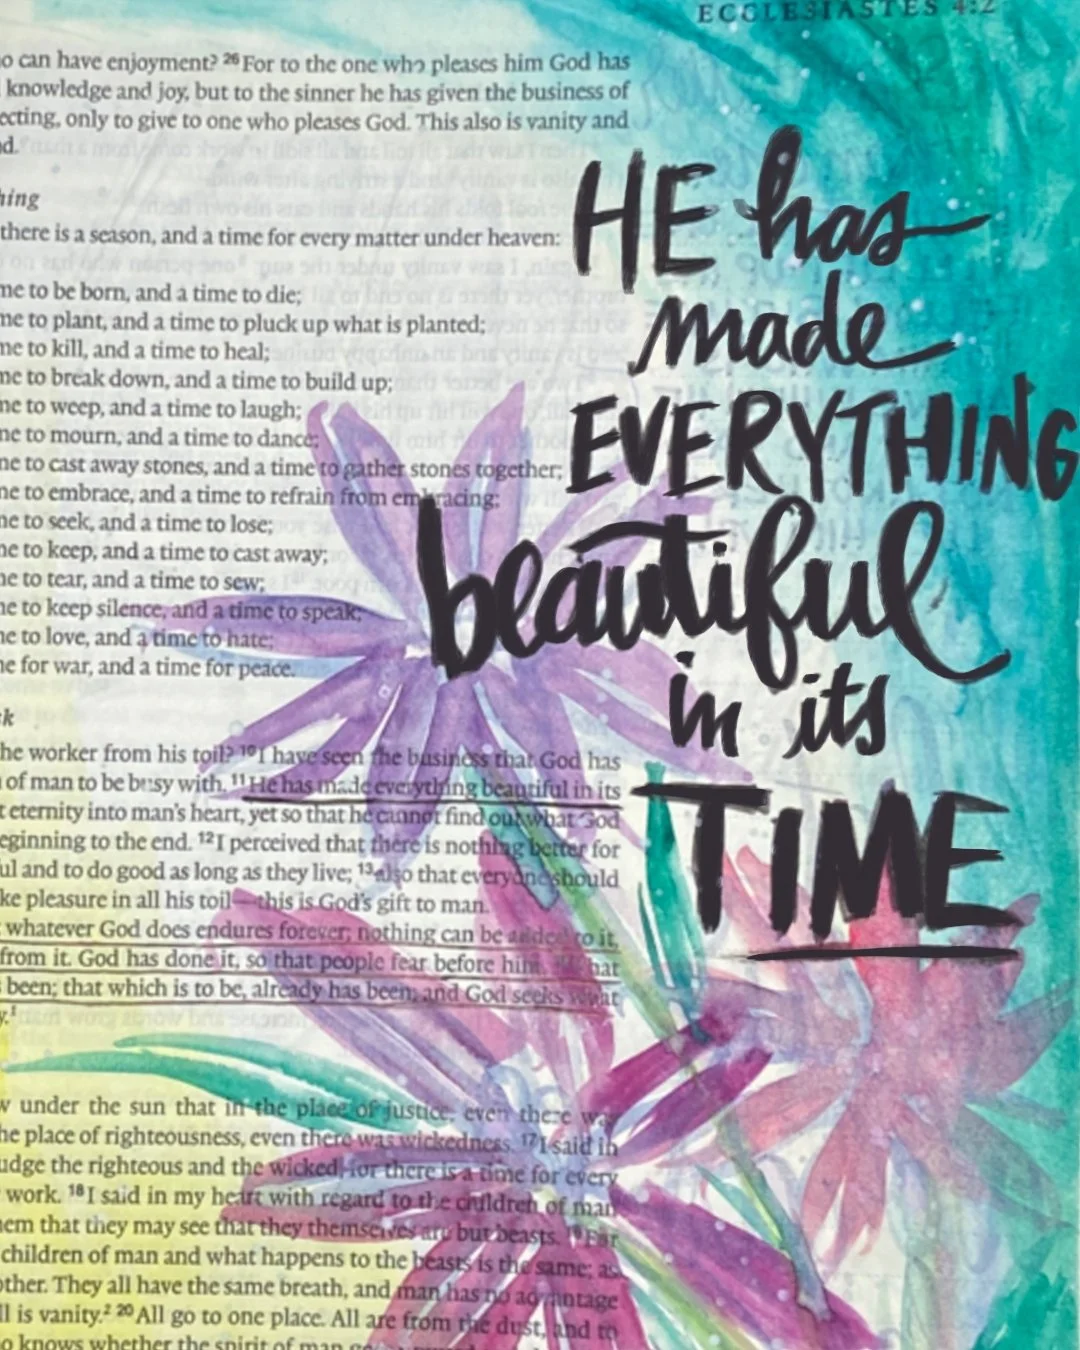 ECCLESIASTES 4:2
o can have enjoyment? 26 For to the one who pleases him God has
knowledge and joy, but to the sinner he has given the business of
ecting, only to give to one who pleases God. This also is vanity and
d.
hing
there is a season, and a time for every matter under heaven:
me to be born, and a time to die;
me to plant, and a time to pluck up what is planted;
me to kill, and a time to heal;
me to break down, and a time to build up;
me to weep, and a time to laugh;
me to mourn, and a time to dance;
me to cast away stones, and a time to gather stones together;
ne to embrace, and a time to refrain from embracing;
ne to seek, and a time to lose;
ne to keep, and a time to cast away;
ne to tear, and a time to sew;
ne to keep silence, and a time to speak;
ne to love, and a time to hate;
ne for war, and a time for peace.
k
he worker from his toil? 10 I have seen the business that God has
of man to be busy with. 11 He has made everything beautiful in its
t eternity into man's heart, yet so that he cannot find out what God
eginning to the end. 12 I perceived that there is nothing better for
ul and to do good as long as they live; 13 also that everyone should
ke pleasure in all his toil—this is God's gift to man.
whatever God does endures forever; nothing can be added to it,
from it. God has done it, so that people fear before him. hat
been; that which is to be, already has been; and God seeks what
y.1
w under the sun that in the place of justice, even there was
he place of righteousness, even there was wickedness. 17 I said in
udge the righteous and the wicked, for there is a time for every
work. 18 I said in my heart with regard to the children of man
em that they may see that they themselves are but beasts. 19 For
children of man and what happens to the beasts is the same; as
other. They all have the same breath, and man has no advantage
ll is vanity.2 20 All go to one place. All are from the dust, and to
o knows whether the spirit of man
HE has
made
EVERYTHING
beautiful
in its
TIME